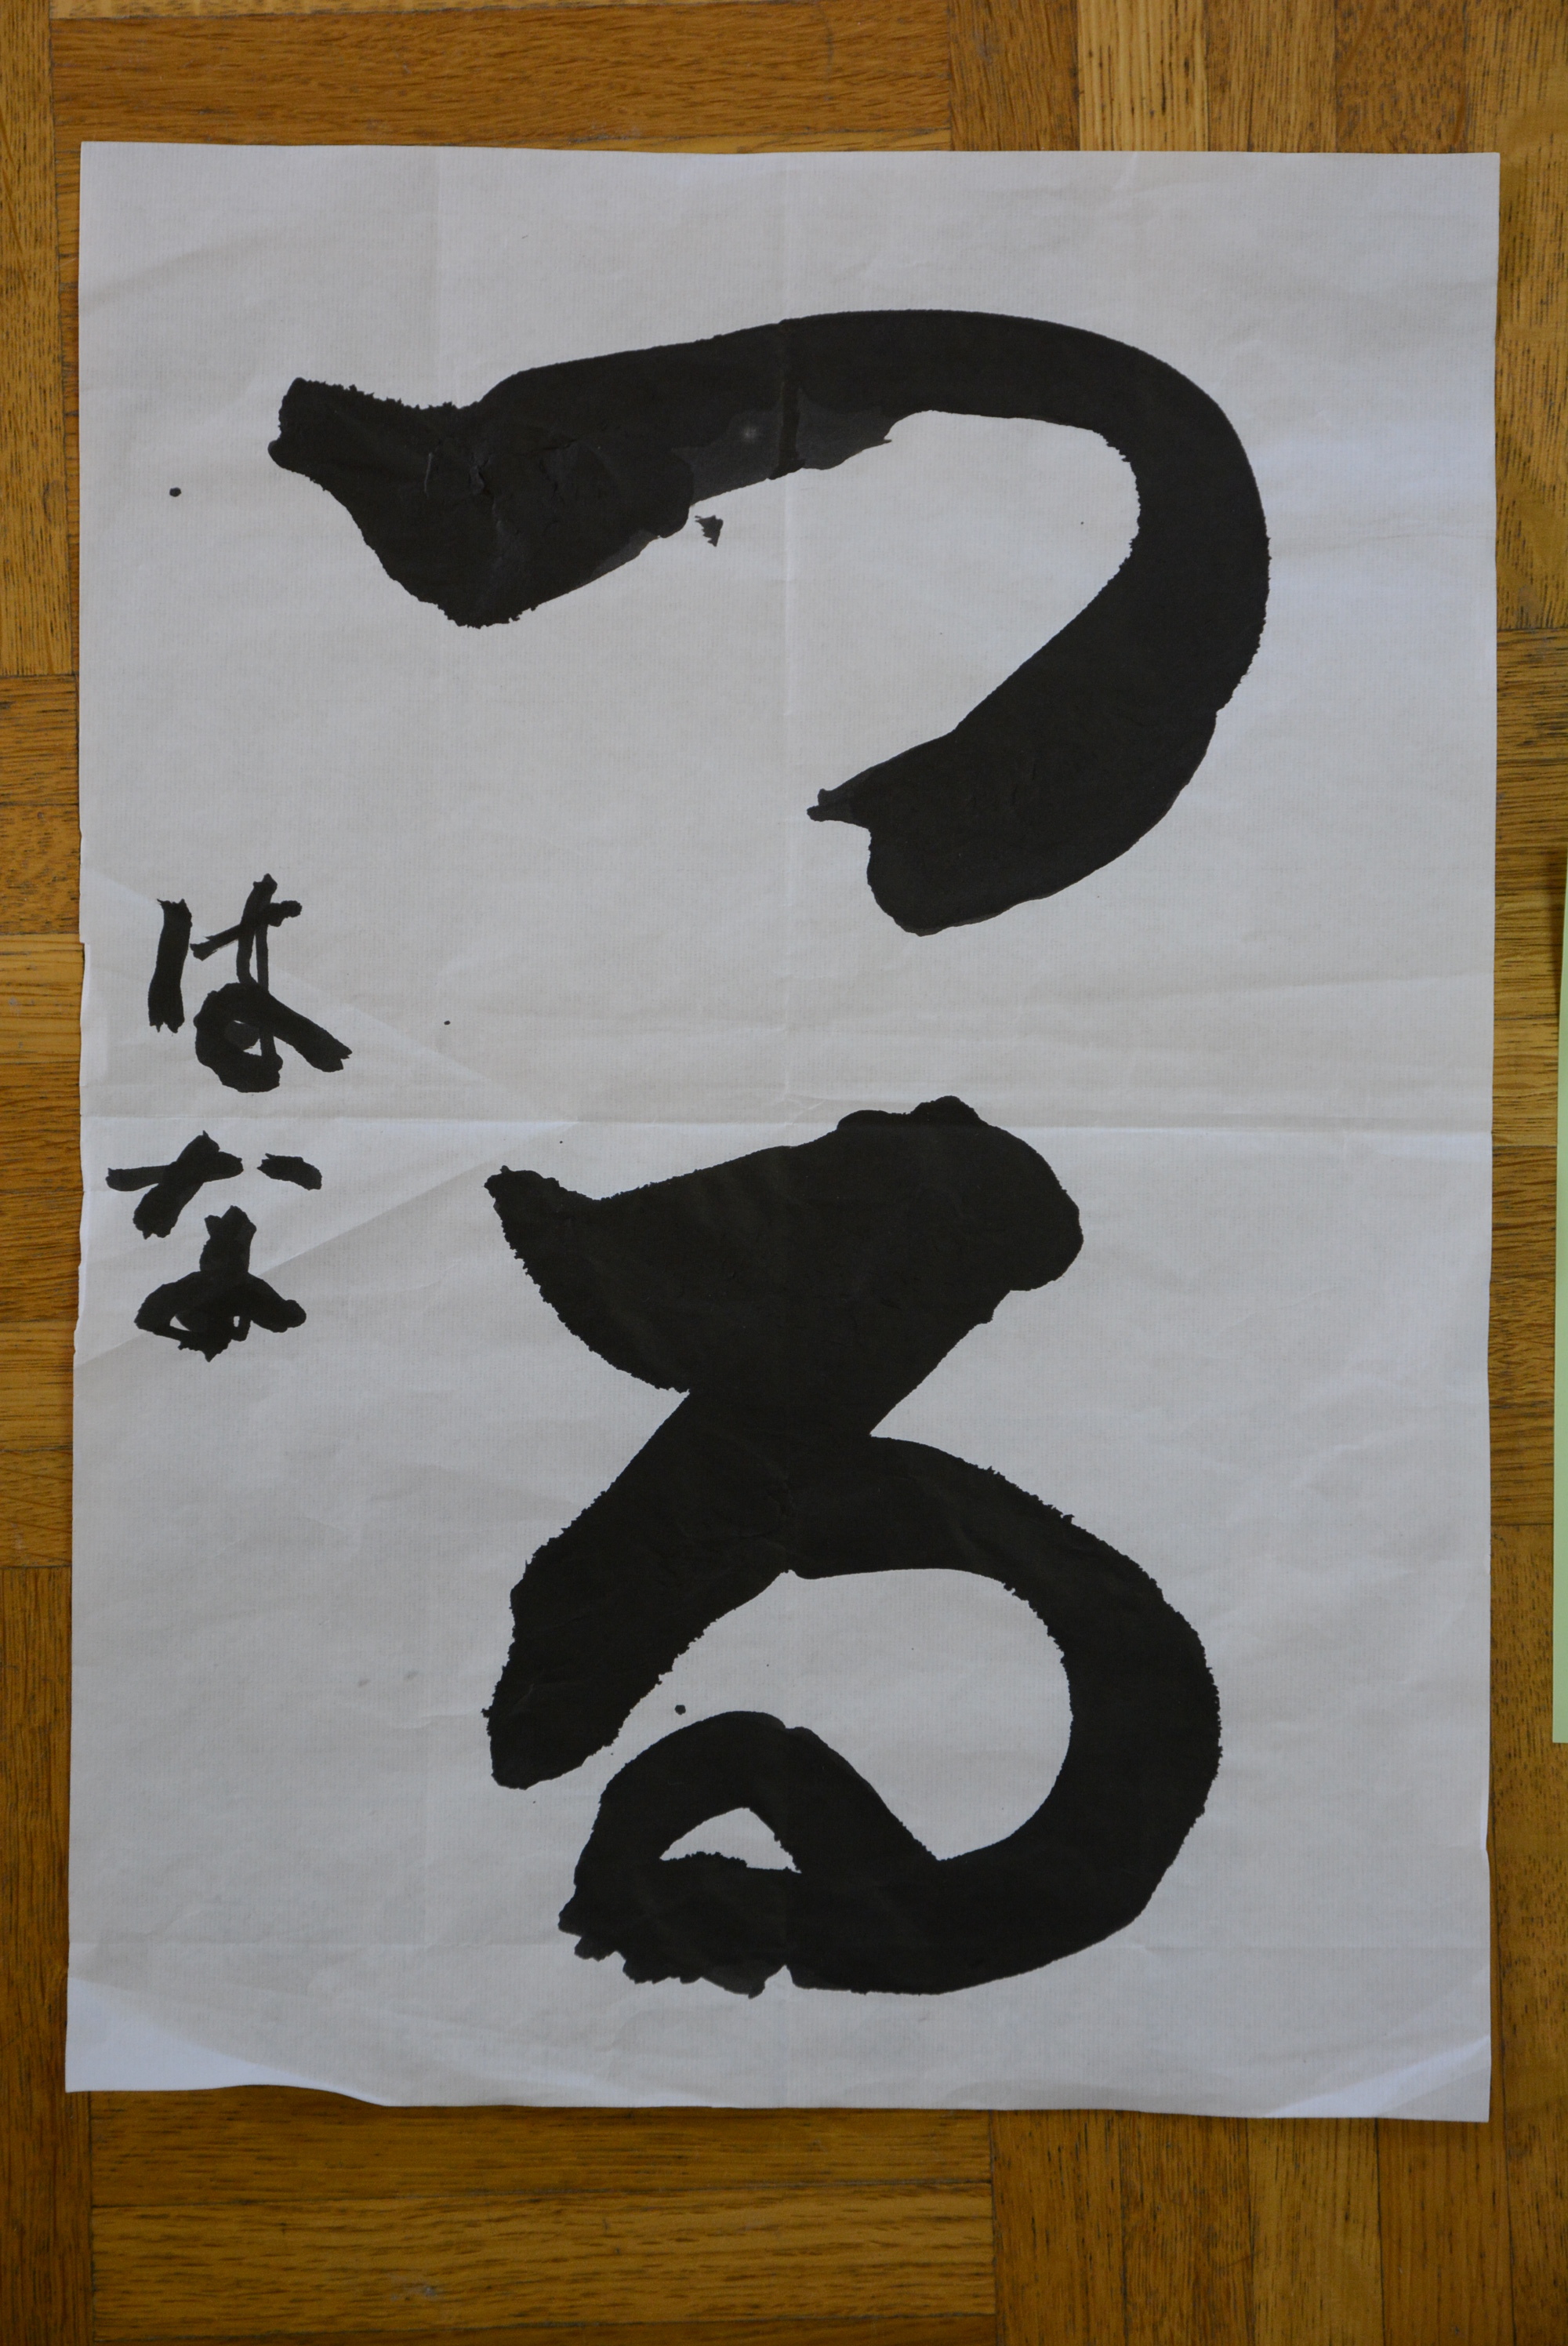 つる
はな